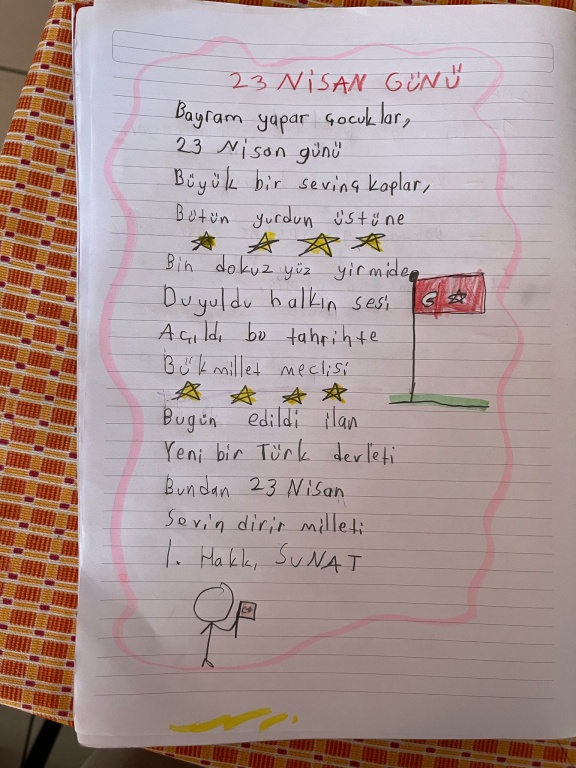 23 NİSAN GÜNÜ
Bayram yapar çocuklar,
23 Nisan günü
Büyük bir sevinç kaplar,
Bütün yurdun üstüne
Bin dokuz yüz yirmide
Duyuldu halkın sesi
Açıldı bu tahrihte
Bük millet meclisi
Bugün edildi ilan
Yeni bir Türk devleti
Bundan 23 Nisan
Sevin dirir milleti
İ. Hakkı SUNAT